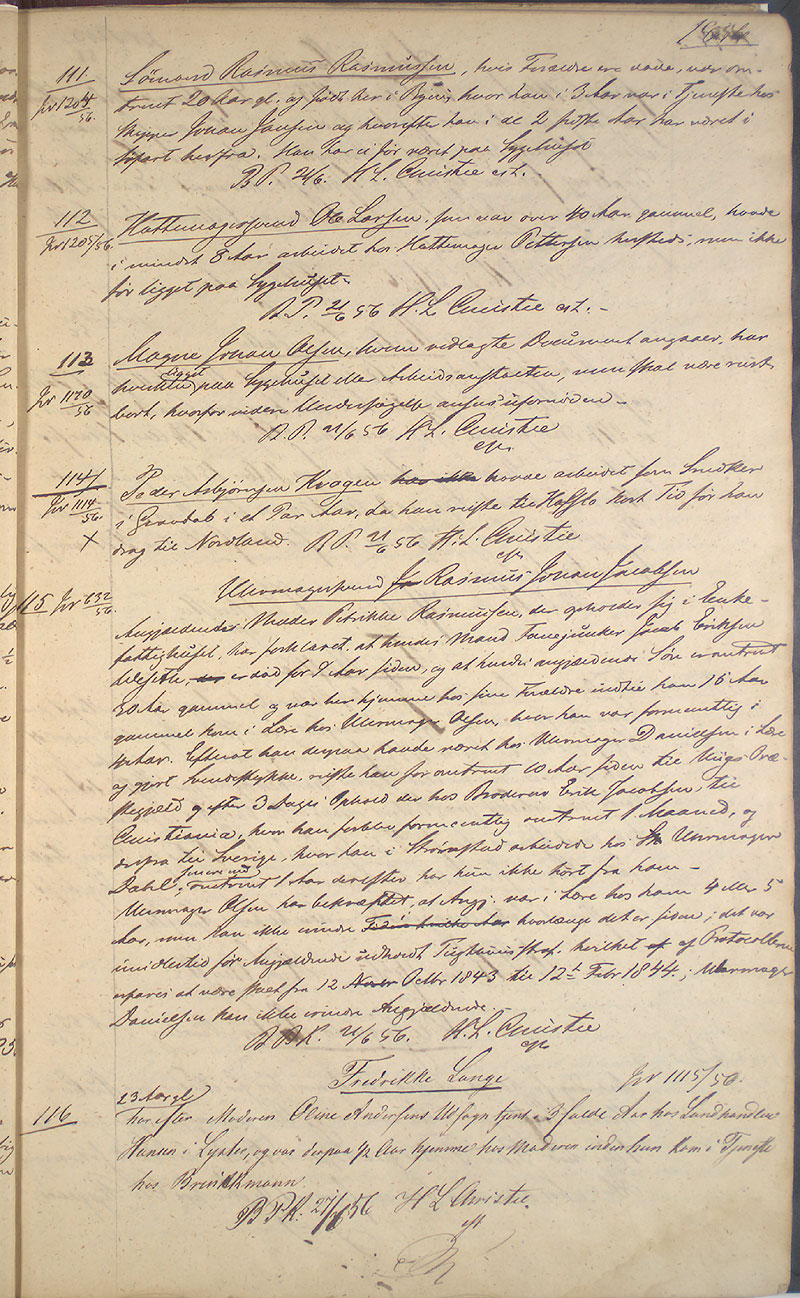 111
Jnr 1204/56
Sömand Rasmus Rasmussen, hvis Forældre ere døde, var om-
trent 20 Aar gl. og født her i Byen, hvor han i 3 Aar var i Tjeneste hos
Skipper Johan Jansen og hvorefter han i de 2 sidste Aar har været i
Søfart herfra. Han har ei før været paa Sygehuset
B P. 21/6. H L. Christie cst.
112
Jnr 1205/56.
Hattemagersvend Ole Larsen, som var over 40 Aar gammel, havde
i mindst 8 Aar arbeidet hos Hattemager Pettersen hersteds, men ikke
før ligget paa Sygehuset.
B. P. 21/6 56 H. L Christie cst. -
113
Jnr 1170/56
Magne Johan Olsen, hvem vedlagte Document angaaer, har
hverken ligget paa Sygehuset eller Arbeidsanstalten, men skal være reist
bort, hvorfor videre Undersøgelse ansees ufornøden. -
B. P. 21/6 56 H L. Christie
cst.
114
Jnr 1114/56.
X
Peder Asbjørnsen Kvagen har ikke havde arbeidet som Snedker
i Gravdal i et Par Aar, da han reiste til Hafslo kort Tid før han
drog til Nordland. B. P. 21/6 56 H. L. Christie
cst.
Uhrmagersvend Ja Rasmus Johan Jacobsen
115 Jnr 632/56.
Angjældendes Moder Petrikke Rasmussen, der opholder sig i Enke-
fattighuset, har forklaret, at hendes Mand Fanejunker Jacob Eriksen
er død for 9 Aar siden, og at hendes angjældende Søn er omtrent
30 Aar gammel og var her hjemme hos sine Forældre indtil han 16 Aar
gammel kom i Lære hos Uhrmager Olsen, hvor han var formentlig i
Aar. Efterat han derpaa havde været hos Uhrmager Danielsen i Lære
og gjort Svendestykke, reiste han for omtrent 10 Aar siden til Præ-
stegjeld og efter 3 Dages Ophold der hos Broderen Erik Jacobsen, til
Christiania, hvor han forblev formeentlig omtrent 1 Maaned, og
derfra til Sverige, hvor han i Strømstad arbeidede hos Uhrmager
Dahl; omtrent 1 Aar derefter har hun ikke hørt fra ham -
Uhrmager Olsen har bekræftet, at Angj. var i Lære hos ham 4 eller 5
Aar, men kan ikke erindre hvorlænge det er siden; det var
imidlertid før Angjældende udholdt Tugthuusstraf. hvilket af Protocollerne
erfares at være skeet fra 12 Novbr Octbr 1843 til 12te Febr 1844; Uhrmager
Danielsen kan ikke erindre Angjældende. -
B P K. 21/6 56. H. L. Christie
cst.
Fredrikke Lange Jnr 1115/56.
116
23 Aar gl
har efter Moderen Oline Andersens Udsagn tjent i 3 fulde Aar hos Landhandler
Hansen i Lyster, og var derpaa 1/2 Aar hjemme hos Moderen inden hun kom i Tjeneste
hos Brinckmann
B P K. 27/6 56 H L Christie.
cst